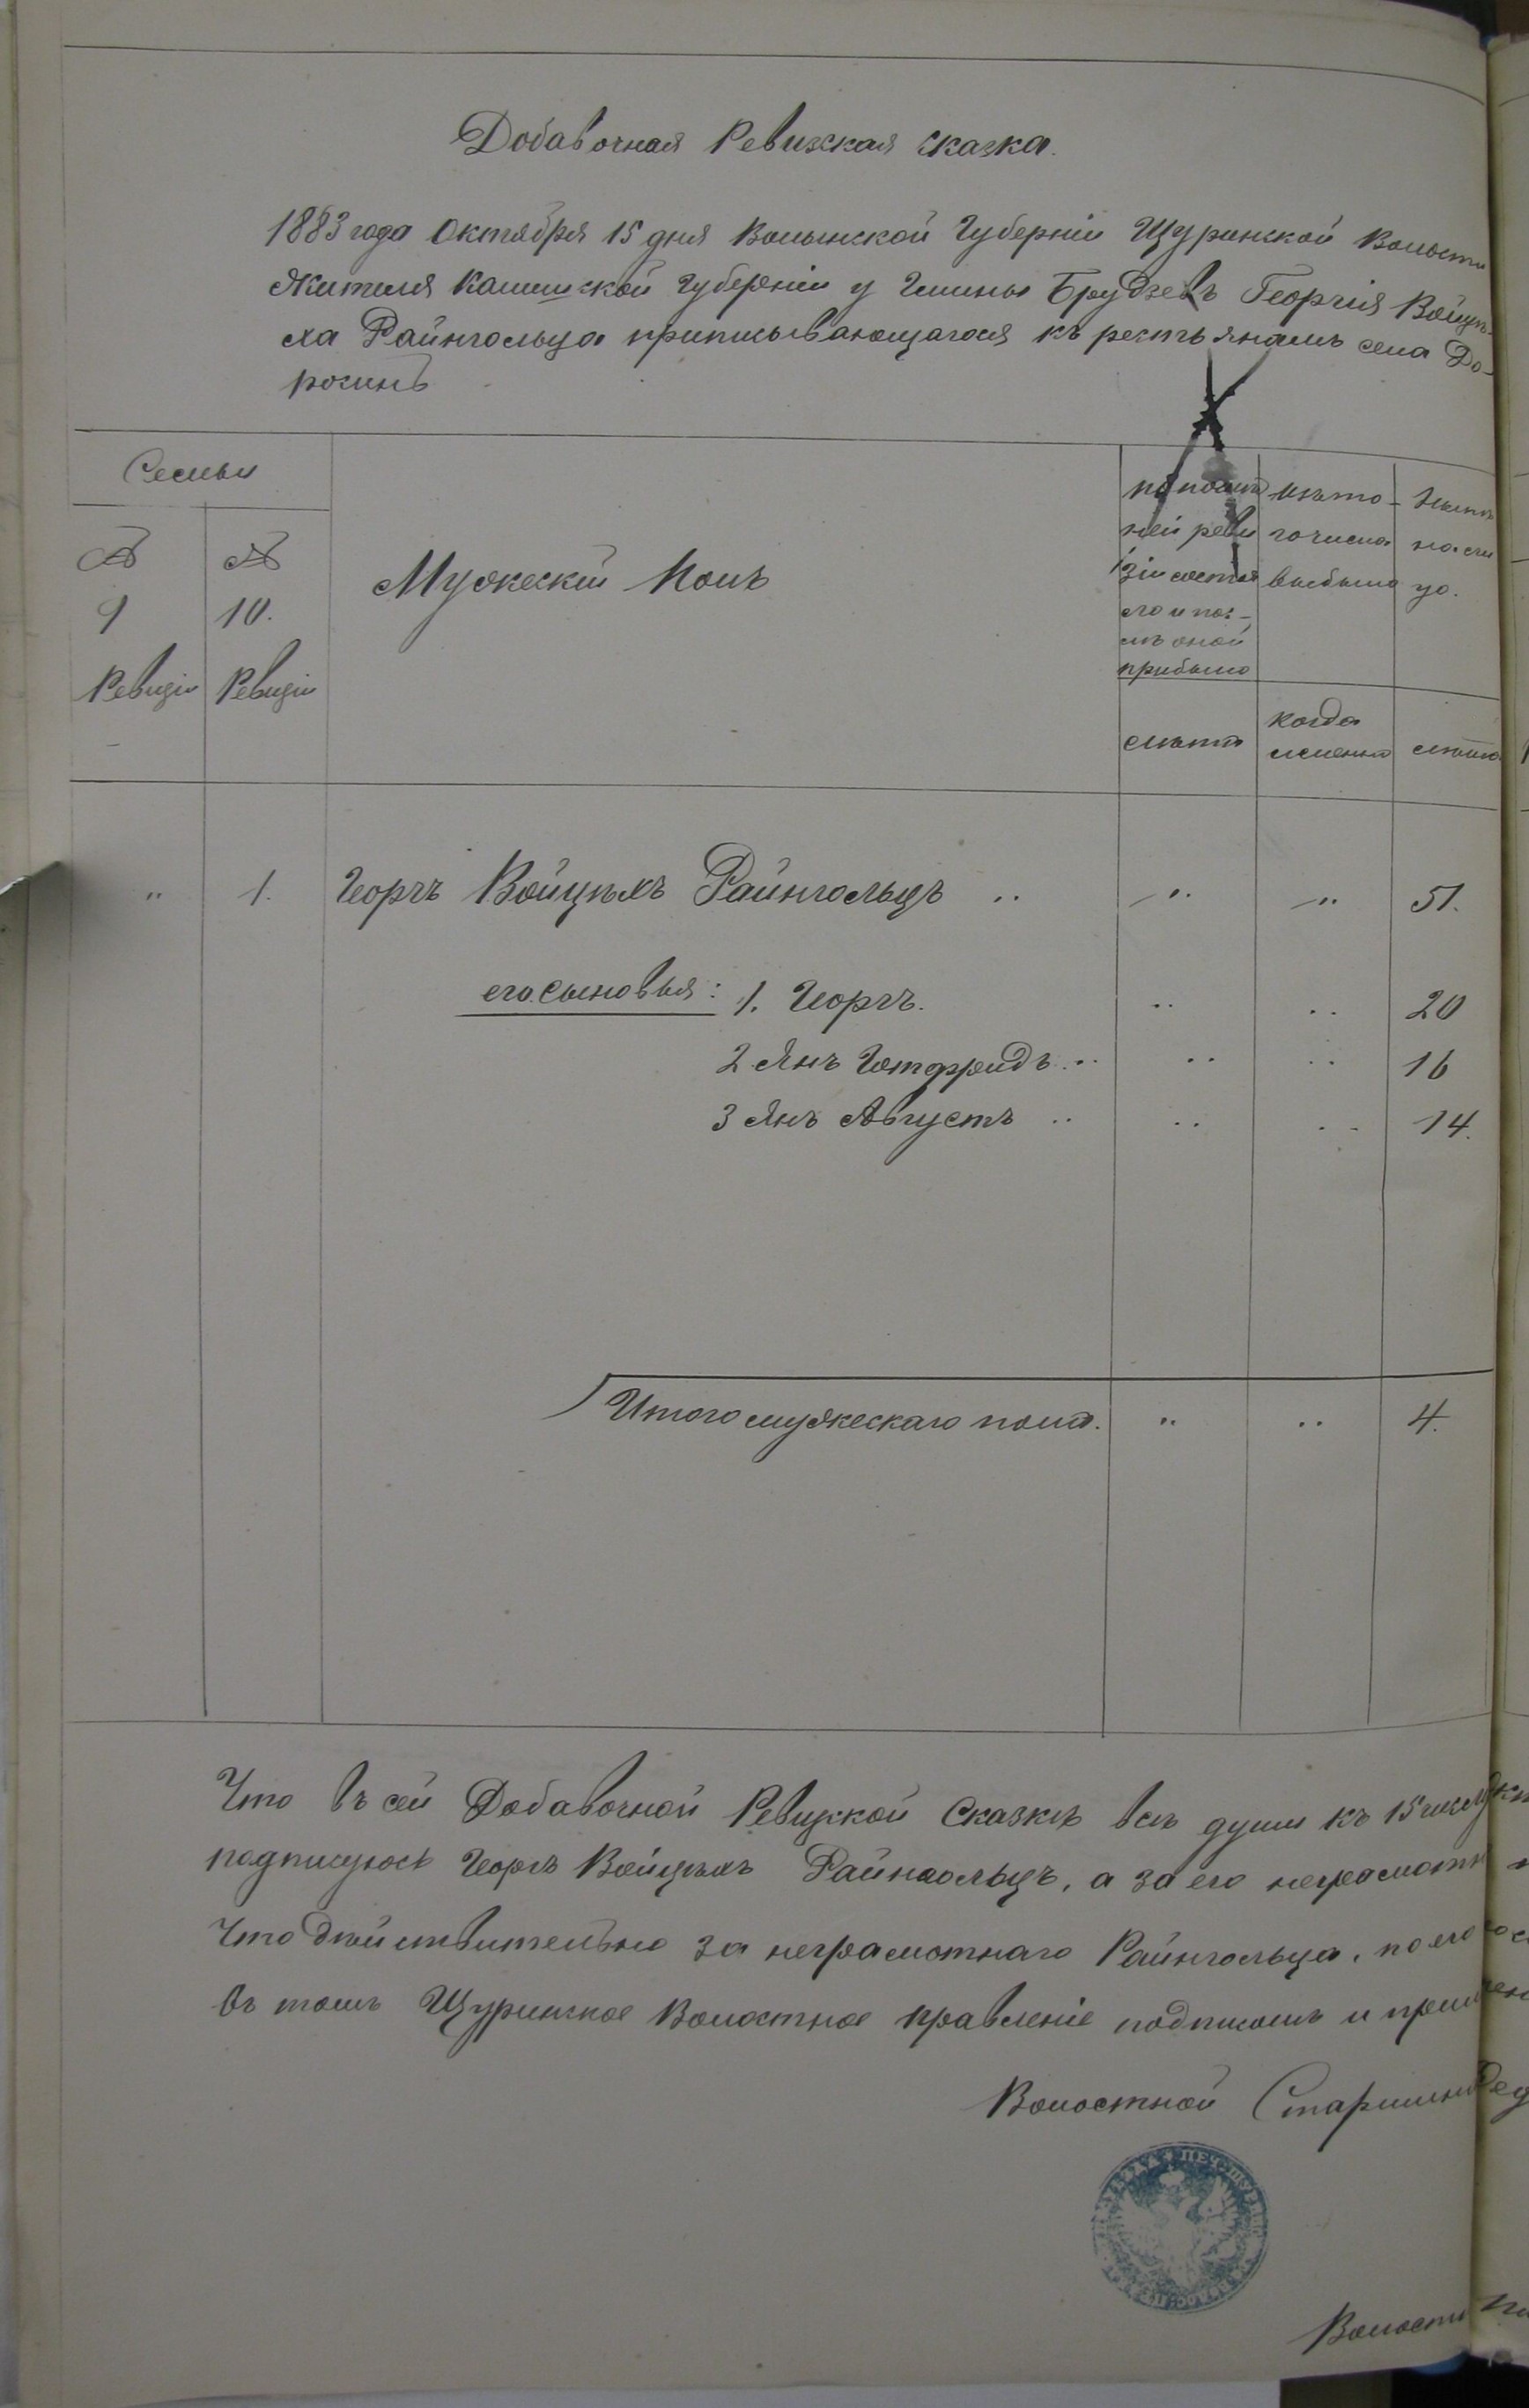 Добавочная Ревизская сказка.
1883 года Октября 15 дня Волынской Губерніи Щуринской Волости
Жителя Калишской Губерніи у Гмины Брудзевъ Георгія Войцѣ-
ха Райнгольца приписывающагося къ рестьянамъ села До-
росинѣ
Семьи
№ №
9 10.
Ревизіи Ревизіи
Мужескій полъ
по послѣд
ней реви
зіи состоя
ло и пос-
лѣ оной
прибыло
изъ то-
го числа
выбыло
Нынѣ
на ли
цо.
лѣта
когда
именно
лѣта
" 1. Георгъ Войцѣхъ Райнгольцъ .. " " 51.
его сыновья: 1. Георгъ. .. .. 20
2 Янъ Готфридъ .. .. .. 16
3 Янъ Августъ .. .. .. 14.
Итого мужескаго пола. " .. 4.
Что въ сей Добавочной Ревизкой Сказкѣ всѣ души къ 15 числу
подписуюсь Георгъ Войцѣхъ Райнгольцъ, а за его неграмотн
Что дѣйствительно за неграмотнаго Райнгольца, по его
въ томъ Щуринское Волостное правленіе подписомъ и прил
Волостной Старшина
Волостн